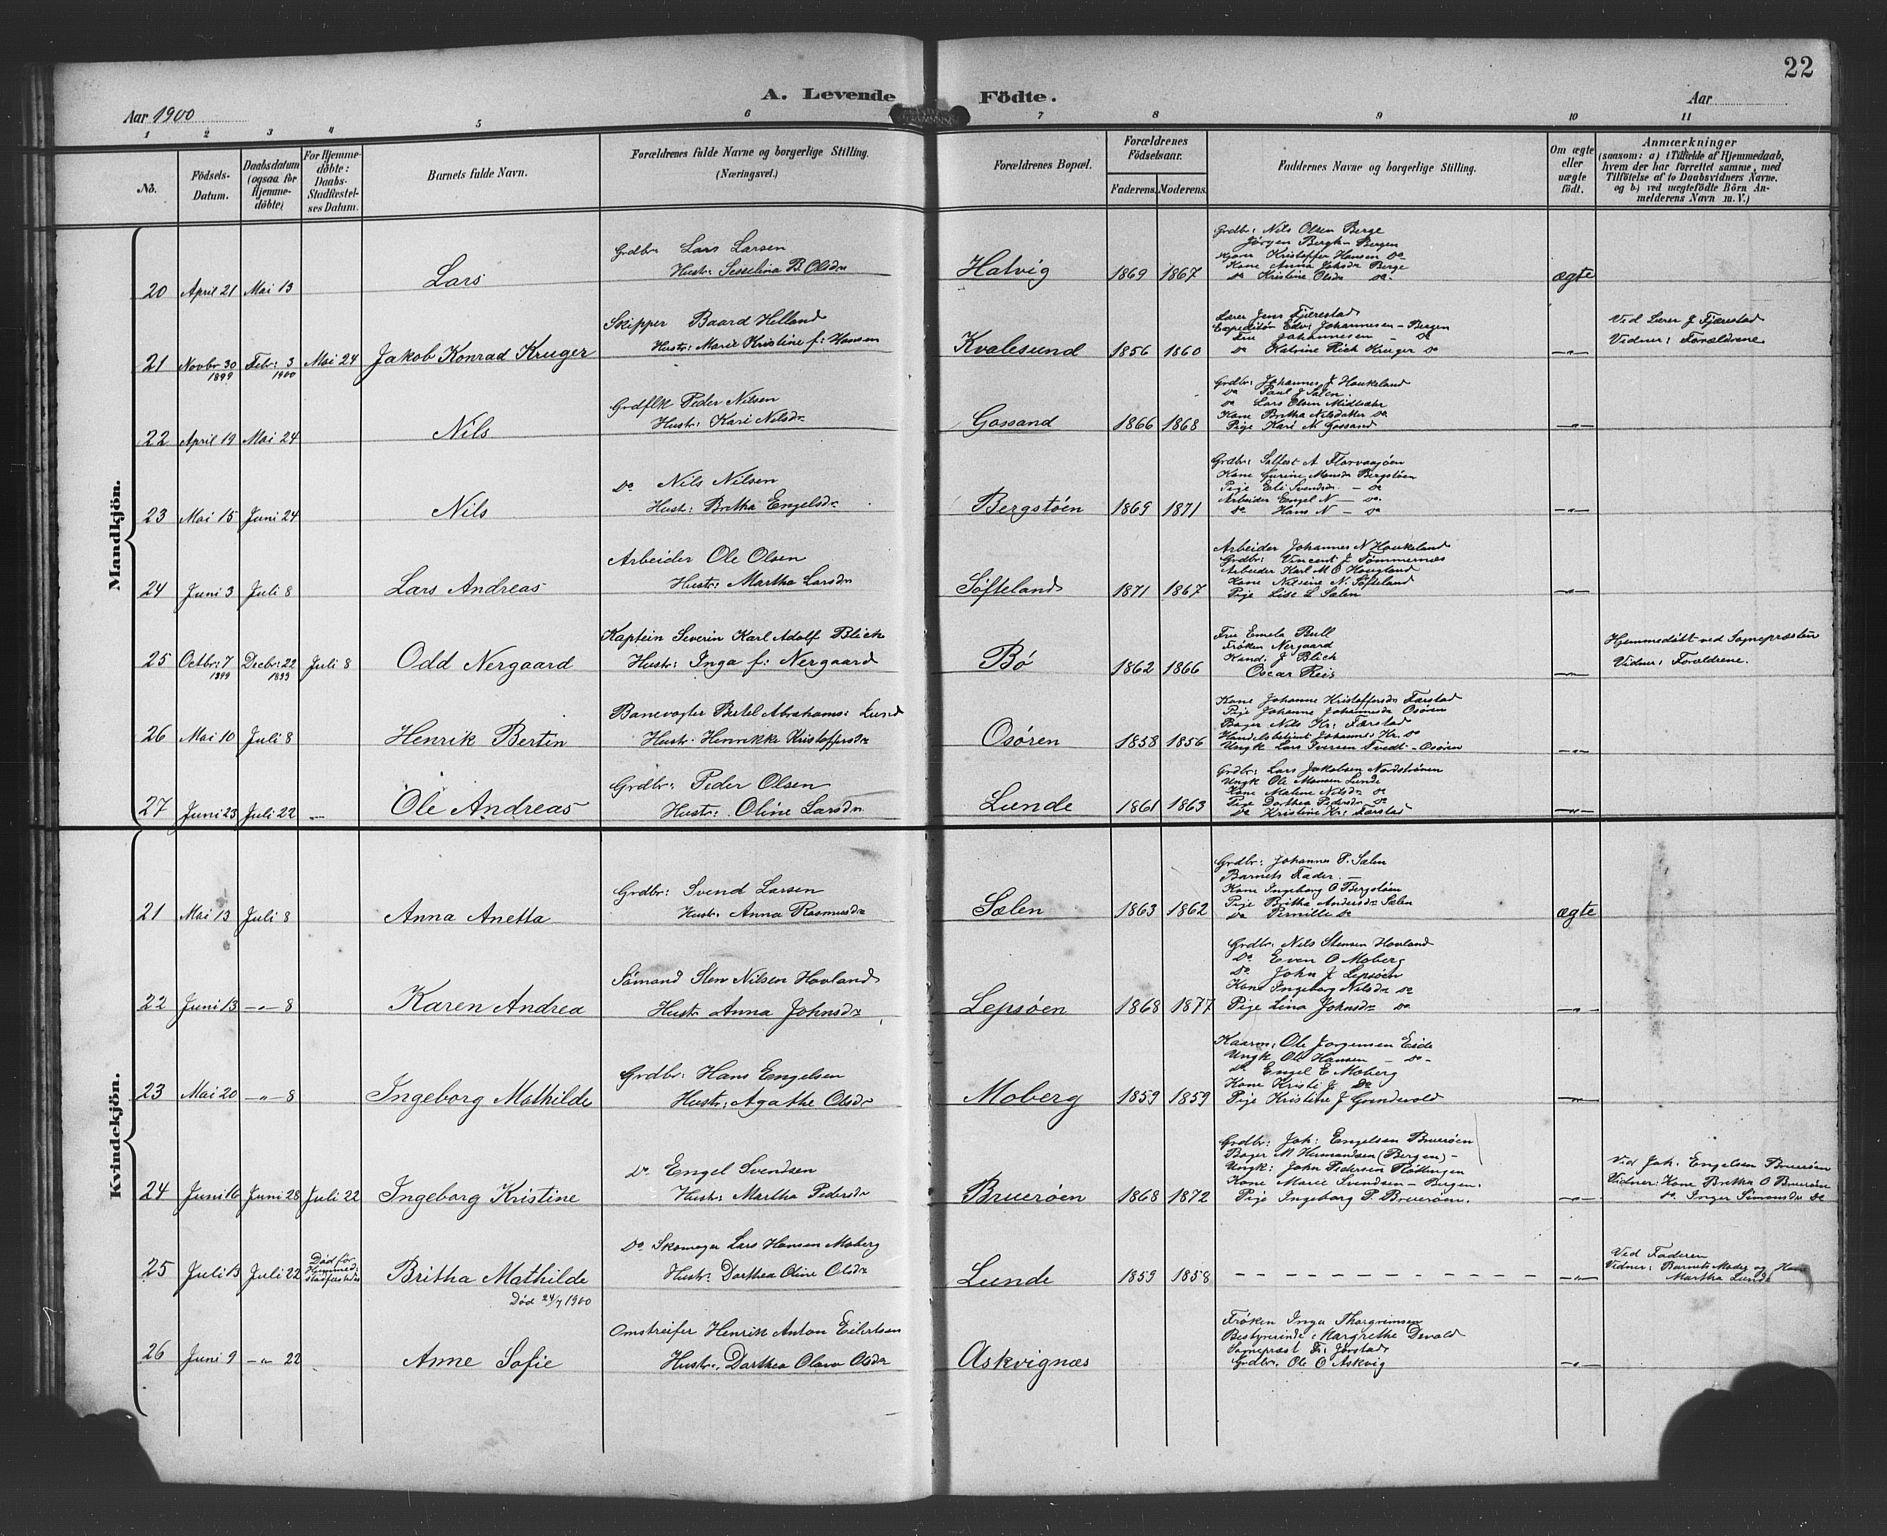 22
A. Levende Födte.
Aar 1900
Aar
1 2 3 4 5 6 7 8 9 10 11
No.
Födsels-Datum.
Daabsdatum (ogsaa for Hjemme-döbte)
For Hjemme-döbte: Daabs-Stadfæstel-ses Datum.
Barnets fulde Navn.
Forældrenes fulde Navne og borgerlige Stilling. (Næringsvei.)
Forældrenes Bopæl.
Forældrenes Födselsaar.
Faderens. Moderens.
Faddernes Navne og borgerlige Stilling.
Om ægte eller uægte födt.
Anmærkninger
(saasom: a) i Tilfælde af Hjemmedaab, hvem der har forrettet samme, med Tilföielse af to Daabsvidners Navne. og b) ved uægtefödte Börn An-melderens Navn m. V.)
Mandkjön.
20 April 21 Mai 13 Lars
Grdbr: Lars Larsen
Hustr: Sesselina B. Olsdr
Hatvig 1869 1867
Grdbr: Nils Olsen Berge
Jörgen Bergh - Bergen
Kristoffer Hansen Do
Kone Anna Johsdr Berge
Do Kristine Olsdr Do
ægte
21 Novbr 30 1899 Febr: 3 1900 Mai 24 Jakob Konrad Kruger
Skipper Baard Helland
Hustr: Marie Kristine f: Hansen
Kvalesund 1856 1860
Lærer Jens Fjærestad
Expeditör Edv: Johannesen - Bergen
Fru Johannesen - Do
Do Katrine Rich Kruger Do
— " —
Ved Lærer J Fjærestad
Vidner: Forældrene
22 April 19 Mai 24 Nils
Grdflk Peder Nilsen
Hustr: Kari Nilsdr
Gossand 1866 1868
Grdbr: Johannes J Haukeland
Do Paul J Sælen
Do Lars Olsen Midtsæter
Kone Britha Nilsdatter Do
Pige Kari M Gossand
— " —
23 Mai 15 Juni 24 Nils
Do Nils Nilsen
Hustr: Britha Engelsdr
Bergstöen 1869 1871
Grdbr: Salfest A Florvaagöen
Kone Gurine Monsdr Bergstöen
Pige Eli Svendsdr - Do
Arbeider Engel N - Do
Do Hans N - Do
— " —
24 Juni 3 Juli 8 Lars Andreas
Arbeider Ole Olsen
Hustr: Martha Larsdr
Söfteland 1871 1867
Arbeider Johannes N Haukeland
Grdbr: Vincent J Tömmernes
Arbeider Karl M O Haugland
Kone Nilsine N. Söfteland
Pige Lise L Sælen
— " —
25 Octbr: 7 1899 Decbr: 22 1899 Juli 8 Odd Nergaard
Kaptein Severin Karl Adolf Blich
Hustr: Inga f: Nergaard
Bö 1862 1866
Fru Emela Bull
Fröken Nergaard
Kand: J Blich
Oscar Reis
— " —
Hjemmedöbt ved Sognepræsten
Vidner: Forældrene.
26 Mai 10 Juli 8 Henrik Bertin
Banevogter Bertel Abrahams: Lund
Hustr: Henrikke Kristoffersdr
Osören 1858 1856
Kone Johanne Kristoffersdr Færstad
Pige Johanne Johannesdr Osören
Bager Nils Kr: Færstad
Handelsbetjent Johannes Kr. Do
Ungk Lars Iversen Tvedt - Osören
— " —
27 Juni 23 Juli 22 — Ole Andreas
Grdbr: Peder Olsen
Hustr: Oline Larsdr
Lunde 1861 1863
Grdbr: Lars Jakobsen Nordströnen
Ungk Ole Monsen Lunde
Kone Malene Nilsdr Do
Pige Dorthea Pedersdr Do
Do Kristine Kr: Færstad
— " —
Kvindekjön.
21 Mai 13 Juli 8 Anna Anetta
Grdbr: Svend Larsen
Hustr: Anna Rasmusdr
Sælen 1863 1862
Grdbr: Johannes P. Sælen
Barnets Fader. —
Kone Ingeborg O Bergstöen
Pige Britha Andersdr Sælen
Do Pernille Do
ægte
22 Juni 13 — " — 8 Karen Andrea
Sömand Sten Nilsen Hovland
Hustr Anna Johnsdr
Lepsöen 1868 1877
Grdbr: Nils Stensen Hovland
Do Even O Moberg
Do John J Lepsöen
Kone Ingeborg Nilsdr Do
Pige Lina Johnsdr Do
— " —
23 Mai 20 — " — 8 Ingeborg Mathilde
Grdbr: Hans Engelsen
Hustr: Agathe Olsdr
Moberg 1859 1859
Kaarm: Ole Jorgensen Eide
Ungk Ole Hansen - Do -
Do Engel E Moberg
Kone Kristi J Do
Pige Kristine J Grindevold
— " —
24 Juni 16 Juni 28 Juli 22 Ingeborg Kristine
Do Engel Svendsen
Hustr: Martha Pedersdr
Brueröen 1868 1872
Grdbr: Joh: Engelsen Brueröen
Bager M Hermandsen (Bergen) -
Ungk: John Pedersen Röttingen
Kone Marie Svendsen - Bergen:
Pige Ingeborg P Brueröen.
— " —
Ved Joh. Engelsen Brueröen
Vidner: Kone Britha O Brueröen
Do Inger Simonsdr Do
25 Juli 13 Juli 22 Död för Hjemmed: stadfæstedes Britha Mathilde
Död 24/7 1900
Do Skomager Lars Hansen Moberg
Hustr: Dorthea Oline Olsdr
Lunde 1859 1858
— " —
Ved Faderen
Vidner: Barnets Moder og
Martha Lunde
26 Juni 9 — " — 22 Anne Sofie
Omstreifer Henrik Anton Eilertsen
Hustr: Dorthea Olava Olsdr
Askvignæs
Fröken Inga Thorgrimsen
Bestyrerinde Margrethe Devold
Sognepræst Fr: Jörstad
Grdbr. Ole O Askvig
— " —